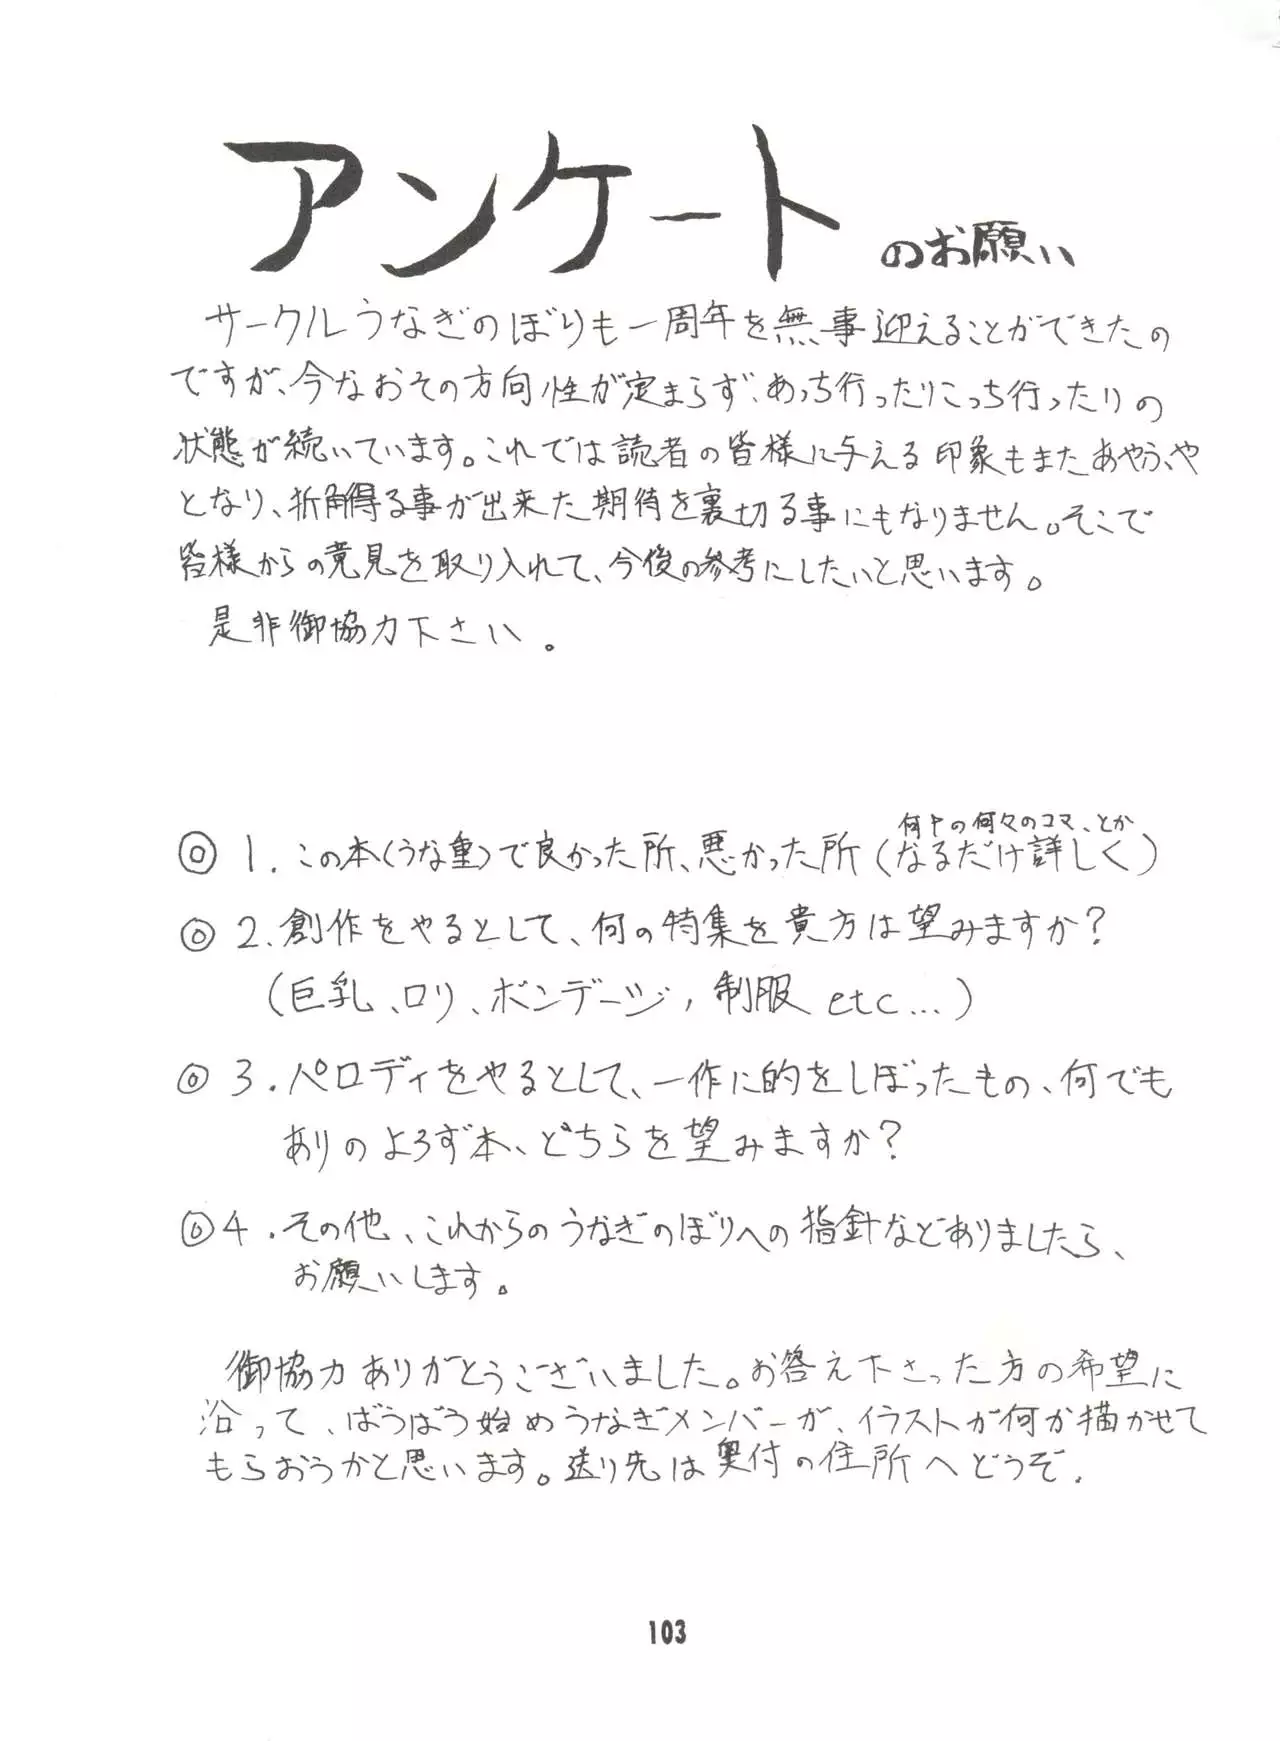 アンケートのお願い
サークルうなぎのぼりも一周年を無事迎えることができたの
ですが、今なおその方向性が定まらず、あっち行ったりこっち行ったりの
状態が続いています。これでは読者の皆様に与える印象もまたあやふや
となり、折角得る事が出来た期待を裏切る事にもなりません。そこで
皆様からの意見を取り入れて、今後の参考にしたいと思います。
是非御協力下さい。
◎1.この本(うな重)で良かった所、悪かった所(なるだけ詳しく)
何Pの何々のコマ、とか
◎2.創作をやるとして、何の特集を貴方は望みますか?
(巨乳、ロリ、ボンデージ, 制服 etc...)
◎3.パロディをやるとして、一作に的をしぼったもの、何でも
ありのよろず本、どちらを望みますか?
◎4.その他、これからのうなぎのぼりへの指針などありましたら、
お願いします。
御協力ありがとうございました。お答え下さった方の希望に
沿って、ばうばう始めうなぎメンバーが、イラストが何か描かせて
もらおうかと思います。送り先は奥付の住所へどうぞ.
103